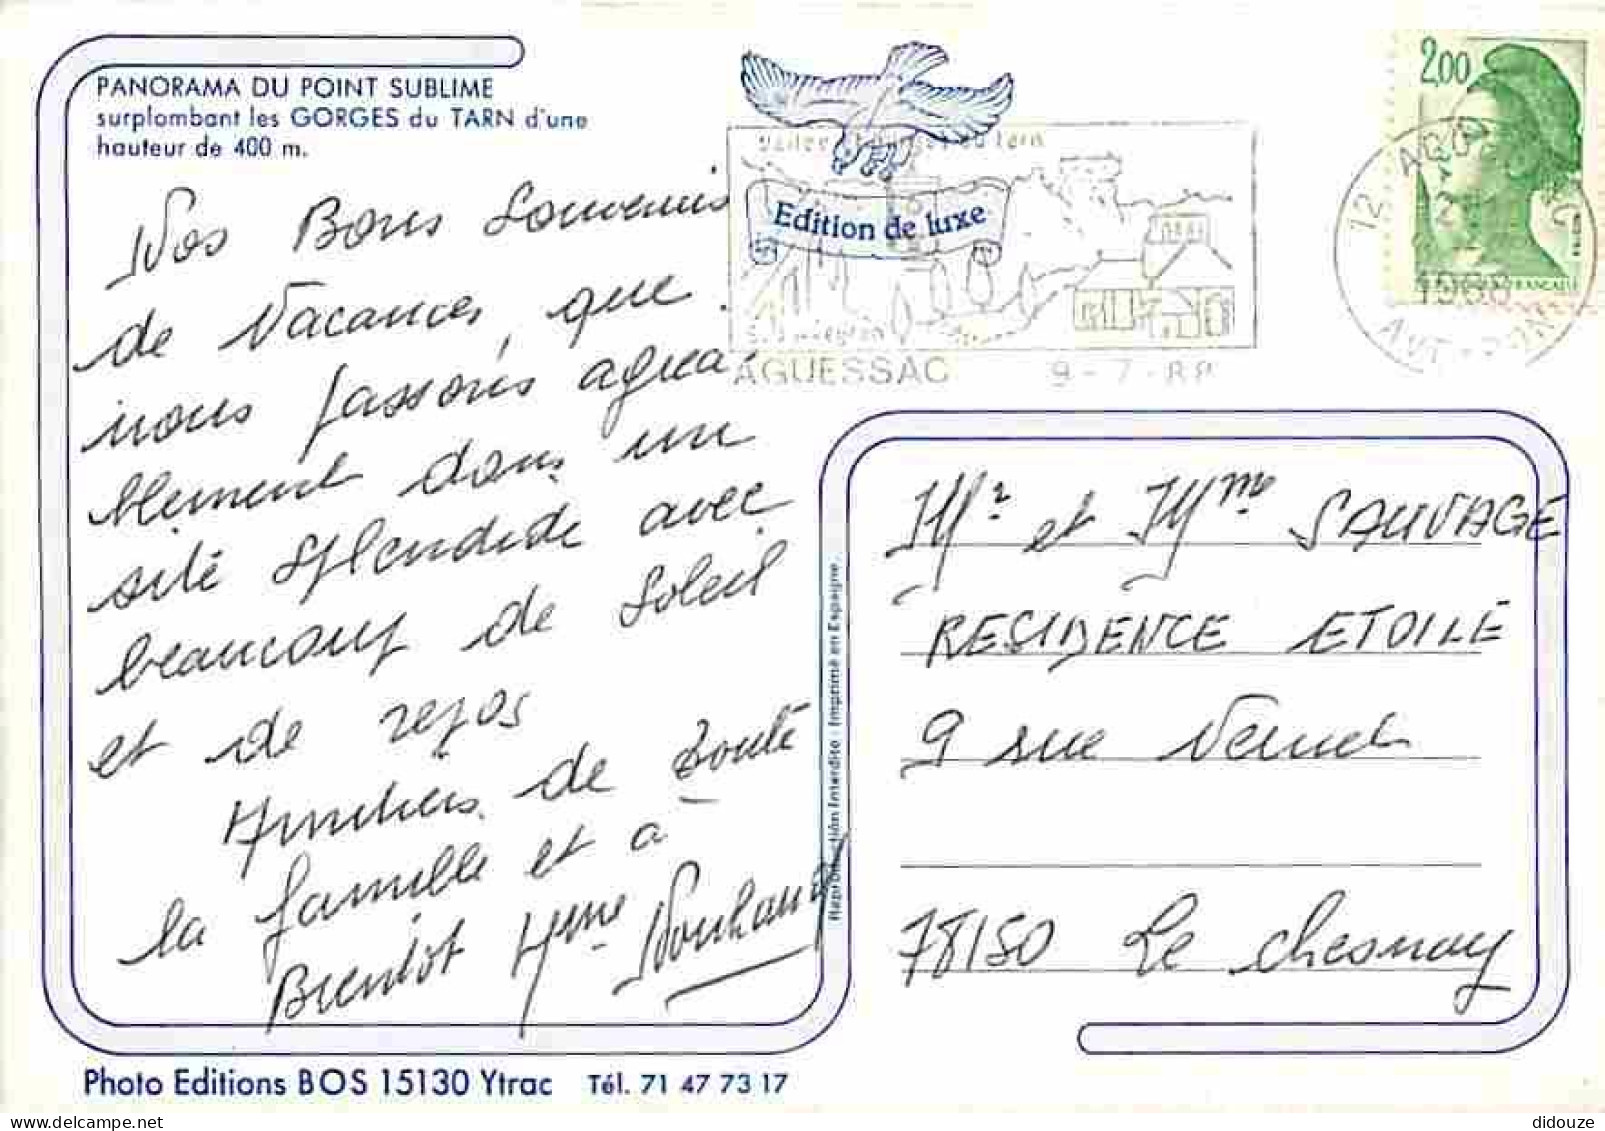 PANORAMA DU POINT SUBLIME
surplombant les GORGES du TARN d'une
hauteur de 400 m.
Nos Bons Souvenirs
de Vacances, que
nous passons agréa-
blement dans un
sité splendide avec
beaucoup de Soleil
et de repos
Amitiés de Touté
la famille et à
Bientot Mme
Edition de luxe
AGUESSAC 9-7-88
2,00
12 AGUESSAC
1988
AVEYRON
Reproduction Interdite - Imprimé en Espagne.
Mr et Mme SAUVAGE
RESIDENCE ETOILE
9 rue Vernet
78150 Le Chesnay
Photo Editions BOS 15130 Ytrac Tél. 71 47 73 17
didouze